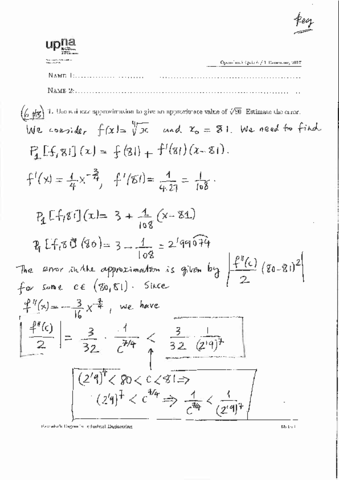 key
upna
NAME 1:
NAME 2:
1. Use a linear approximation to give an approximate value of ∜80. Estimate the error.
We consider f(x) = ∜x and x₀ = 81. We need to find
P₁[f,81](x) = f(81) + f'(81)(x-81).
f'(x) = 1/4 x^(-3/4), f'(81) = 1/(4·27) = 1/108.
P₁[f,81](x) = 3 + 1/108 (x-81)
P₁[f,81](80) = 3 - 1/108 = 2'99074
The error in the approximation is given by |f''(c)/2 (80-81)²|
for some c∈(80,81). Since
f''(x) = -3/16 x^(-7/4), we have
|f''(c)/2| = 3/32 · 1/c^(7/4) < 3/32 · 1/(2'9)^7
(2'9)^4 < 80 < c < 81 ⇒
(2'9)^7 < c^(7/4) ⇒ 1/c^(7/4) < 1/(2'9)^7